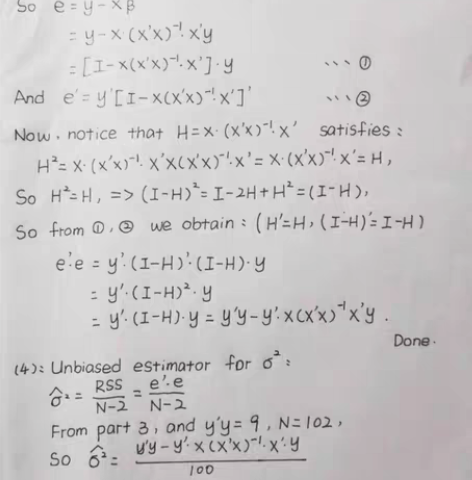 So e = y - xβ
= y - x·(x'x)⁻¹·x'y
= [I - x(x'x)⁻¹·x']·y ··· ①
And e' = y'[I - x(x'x)⁻¹·x']' ··· ②
Now, notice that H = x·(x'x)⁻¹·x' satisfies:
H² = x·(x'x)⁻¹·x'x(x'x)⁻¹·x' = x·(x'x)⁻¹·x' = H,
So H² = H, => (I-H)² = I - 2H + H² = (I-H),
So from ①, ② we obtain: (H'=H, (I-H)'=I-H)
e'·e = y'·(I-H)'·(I-H)·y
= y'·(I-H)²·y
= y'·(I-H)·y = y'y - y'·x(x'x)⁻¹x'y.
Done.
(4): Unbiased estimator for σ²:
σ̂² = RSS/N-2 = e'·e/N-2
From part 3, and y'y = 9, N = 102,
So σ̂² = y'y - y'·x(x'x)⁻¹·x'·y/100